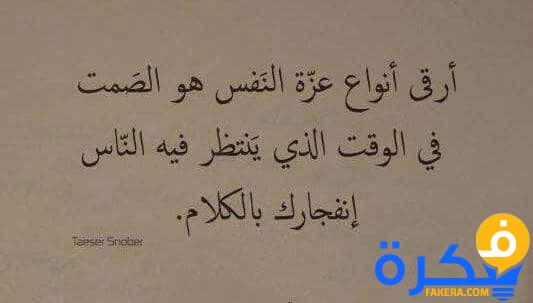 أرقى أنواع عزّة النَفس هو الصَمت
في الوقت الذي يَنتظر فيه النّاس
إنفجارك بالكلام.
Taeser Snober
فكرة
FAKERA.COM